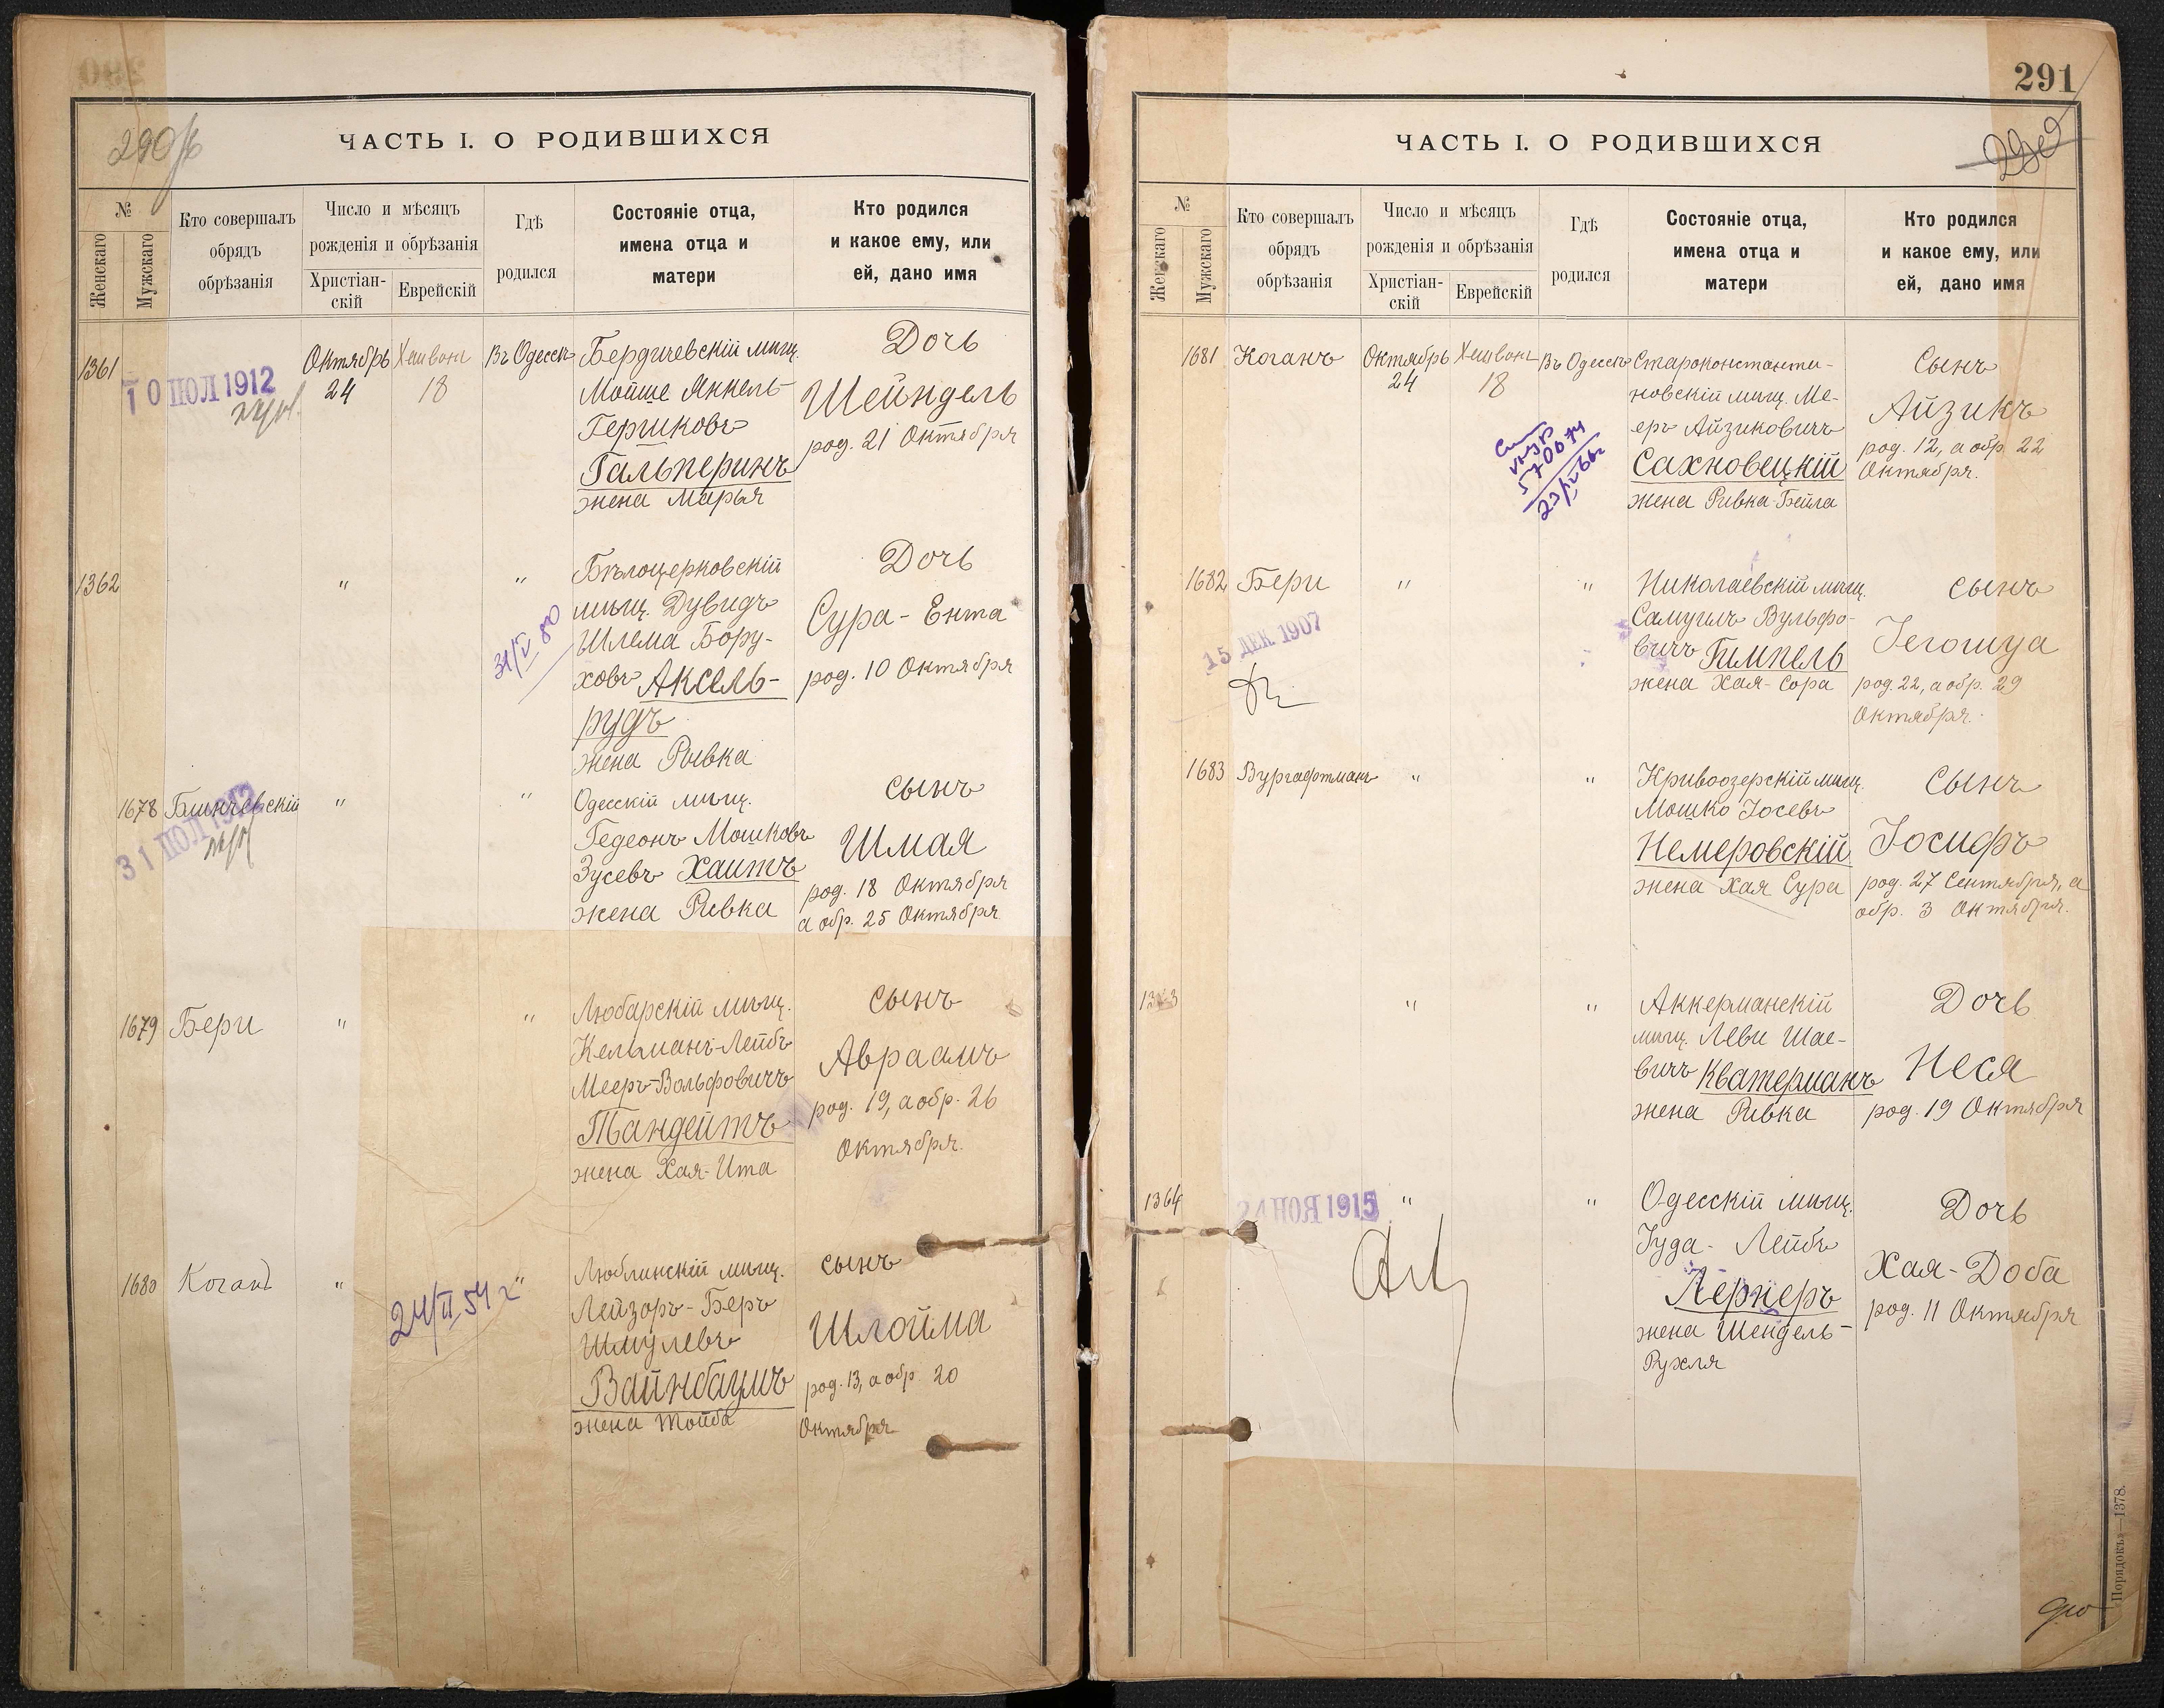 290 об
ЧАСТЬ I. О РОДИВШИХСЯ
№
Женскаго
Мужскаго
Кто совершалъ
обрядъ
обрѣзанія
Число и мѣсяцъ
рожденія и обрѣзанія
Христіан-
скій
Еврейскій
Гдѣ
родился
Состояніе отца,
имена отца и
матери
Кто родился
и какое ему, или
ей, дано имя
1361
10 ІЮЛ 1912
Октябрь
24
Хешвонъ
18
Въ Одессѣ
Бердичевскій мѣщ.
Мойше Янкель
Гершковъ
Гальперинъ
жена Марья
Дочь
Шейндель
род. 21 Октября
1362
"
"
31/V 80
Бѣлоцерковскій
мѣщ. Дувидъ
Шлема Бору-
ховъ Аксель-
рудъ
жена Ривка
Дочь
Сура-Ента
род. 10 Октября
1678
Блинчевскій
31 ІЮЛ 1912
"
"
Одесскій мѣщ.
Гедеонъ Мошковъ
Зусевъ Хаитъ
жена Ривка
сынъ
Шмая
род. 18 Октября
а обр. 25 Октября
1679
Бери
"
"
Любарскій мѣщ.
Кельманъ-Лейбъ
Мееръ-Вольфовичъ
Тандейтъ
жена Хая-Ита
сынъ
Авраамъ
род. 19, а обр. 26
Октября.
1680
Коганъ
"
24/II 54 г
"
Люблинскій мѣщ.
Лейзоръ-Беръ
Шмулевъ
Вайнбаумъ
жена Тойба
сынъ
Шлойма
род. 13, а обр. 20
Октября
291
ЧАСТЬ I. О РОДИВШИХСЯ
№
Женскаго
Мужскаго
Кто совершалъ
обрядъ
обрѣзанія
Число и мѣсяцъ
рожденія и обрѣзанія
Христіан-
скій
Еврейскій
Гдѣ
родился
Состояніе отца,
имена отца и
матери
Кто родился
и какое ему, или
ей, дано имя
1681
Коганъ
Октябрь
24
Хешвонъ
18
Въ Одессѣ
Староконстанти-
новскій мѣщ. Ме-
еръ Айзиковичъ
Сахновецкій
жена Ривка-Бейла
Сынъ
Айзикъ
род. 12, а обр. 22
Октября.
1682
Бери
15 ДЕК 1907
"
"
Николаевскій мѣщ.
Самуилъ Вульфо-
вичъ Гимпель
жена Хая-Сора
сынъ
Іегошуа
род. 22, а обр. 29
Октября.
1683
Вургафтманъ
"
"
Кривоозерскій мѣщ.
Мошко Іосевъ
Немеровскій
жена Хая Сура
Сынъ
Іосифъ
род. 27 Сентября, а
обр. 3 Октября.
1363
"
"
Аккерманскій
мѣщ. Леви Шае-
вичъ Кватерманъ
жена Ривка
Дочь
Неся
род. 19 Октября
1364
24 НОЯ 1915
"
"
Одесскій мѣщ.
Іуда-Лейбъ
Лернеръ
жена Шендель-
Рухля
Дочь
Хая-Доба
род. 11 Октября
„Порядокъ»—1378.